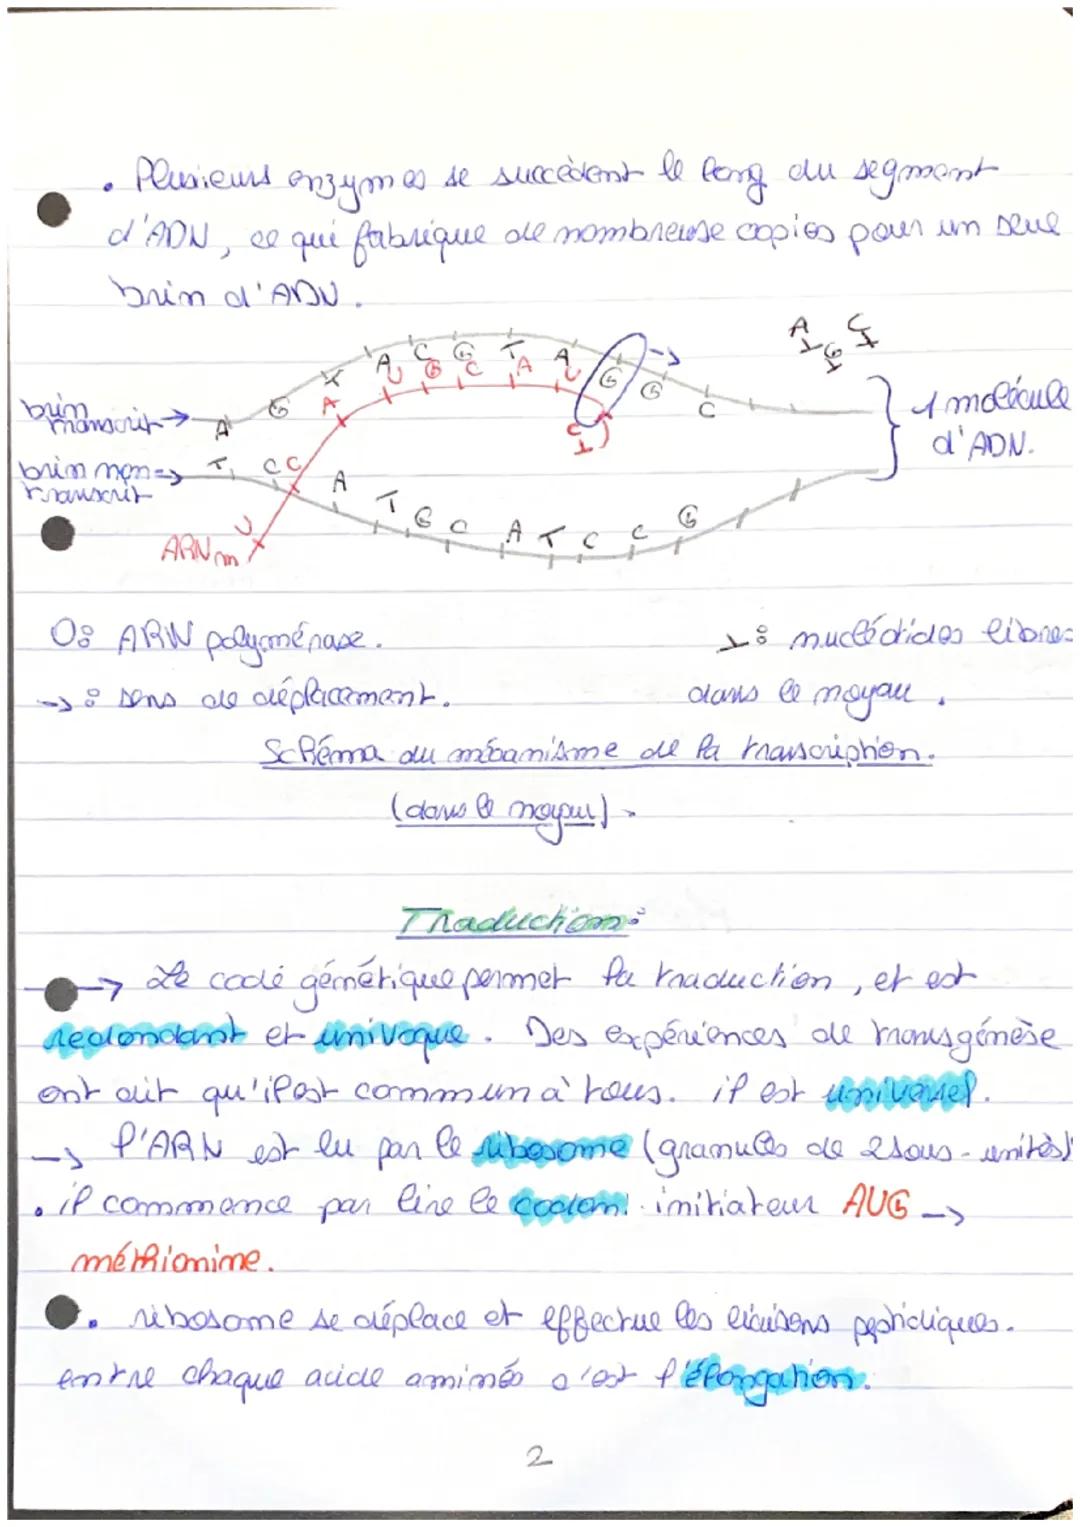 . Plusieurs enzymes se succèdent le long du segment
d'ADN, ce qui fabrique de nombreuse copies pour un seul
brin d'ADN.
A G T A C G T A G G C
A U G C A U
C
A G C
brin transcrit →
1 molécule d'ADN.
brin non transcrit →
T C C A T G C A T C C G
U
ARNm
O: ARN polyménase.
⊥: nucléotides libres
-> : sens de déplacement.
dans le noyau.
Schéma du mécanisme de la transcription.
(dans le noyau).
Traduction:
-> Le code génétique permet la traduction, et est
redondant et univoque. Des expériences de transgénèse
ont dit qu'il est commun à tous. il est universel.
-> l'ARN est lu par le ribosome (granules de 2 sous-unités)
. il commence par lire le codon initiateur AUG ->
méthionine.
. ribosome se déplace et effectue les liaisons peptidiques.
entre chaque acide aminés c'est l'élongation.
2